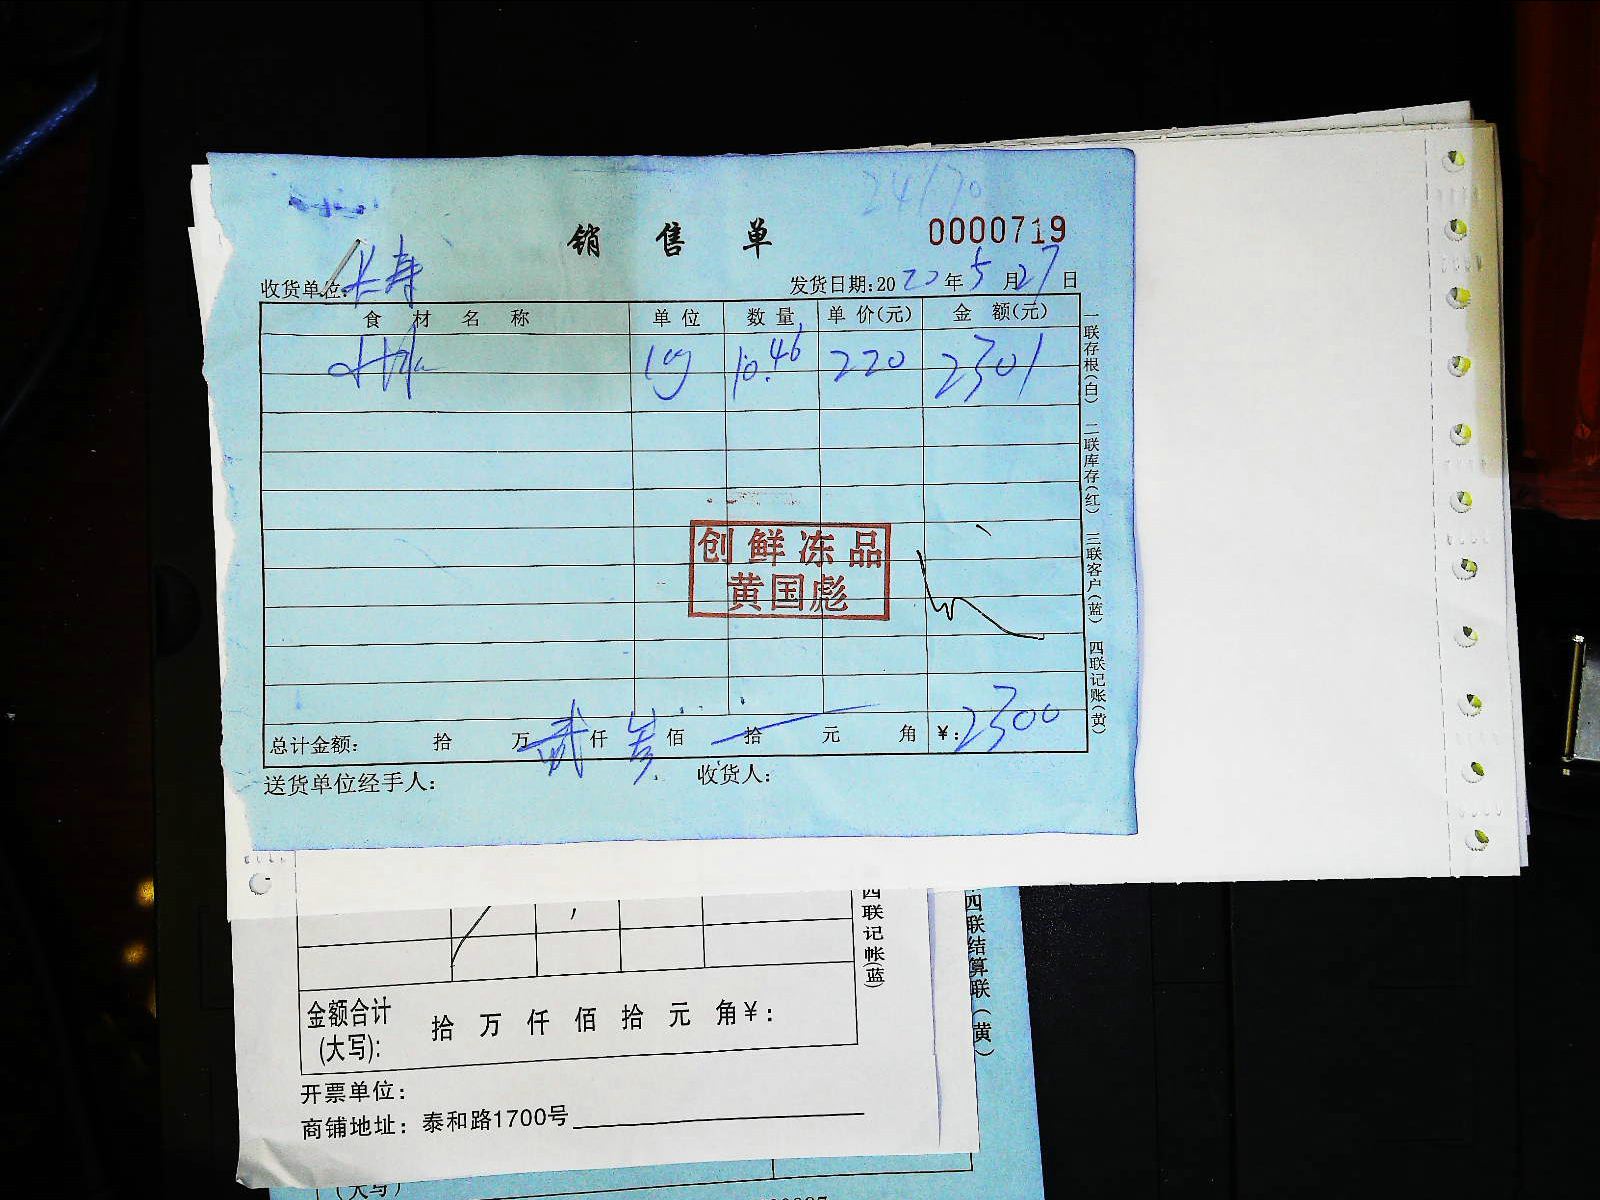 24170
销售单
0000719
收货单位: 长寿
发货日期:2022年5月27日
食材名称 单位 数量 单价(元) 金额(元)
kg 10.46 220 2301
创鲜冻品
黄国彪
总计金额: 拾 万贰仟 叁佰 拾 元 角 ¥:2300
送货单位经手人: 收货人:
一联存根(白) 二联库存(红) 三联客户(蓝) 四联记账(黄)
四联记帐(蓝)
四联结算联(黄)
金额合计
(大写): 拾 万 仟 佰 拾 元 角¥:
开票单位:
商铺地址: 泰和路1700号
(大写)